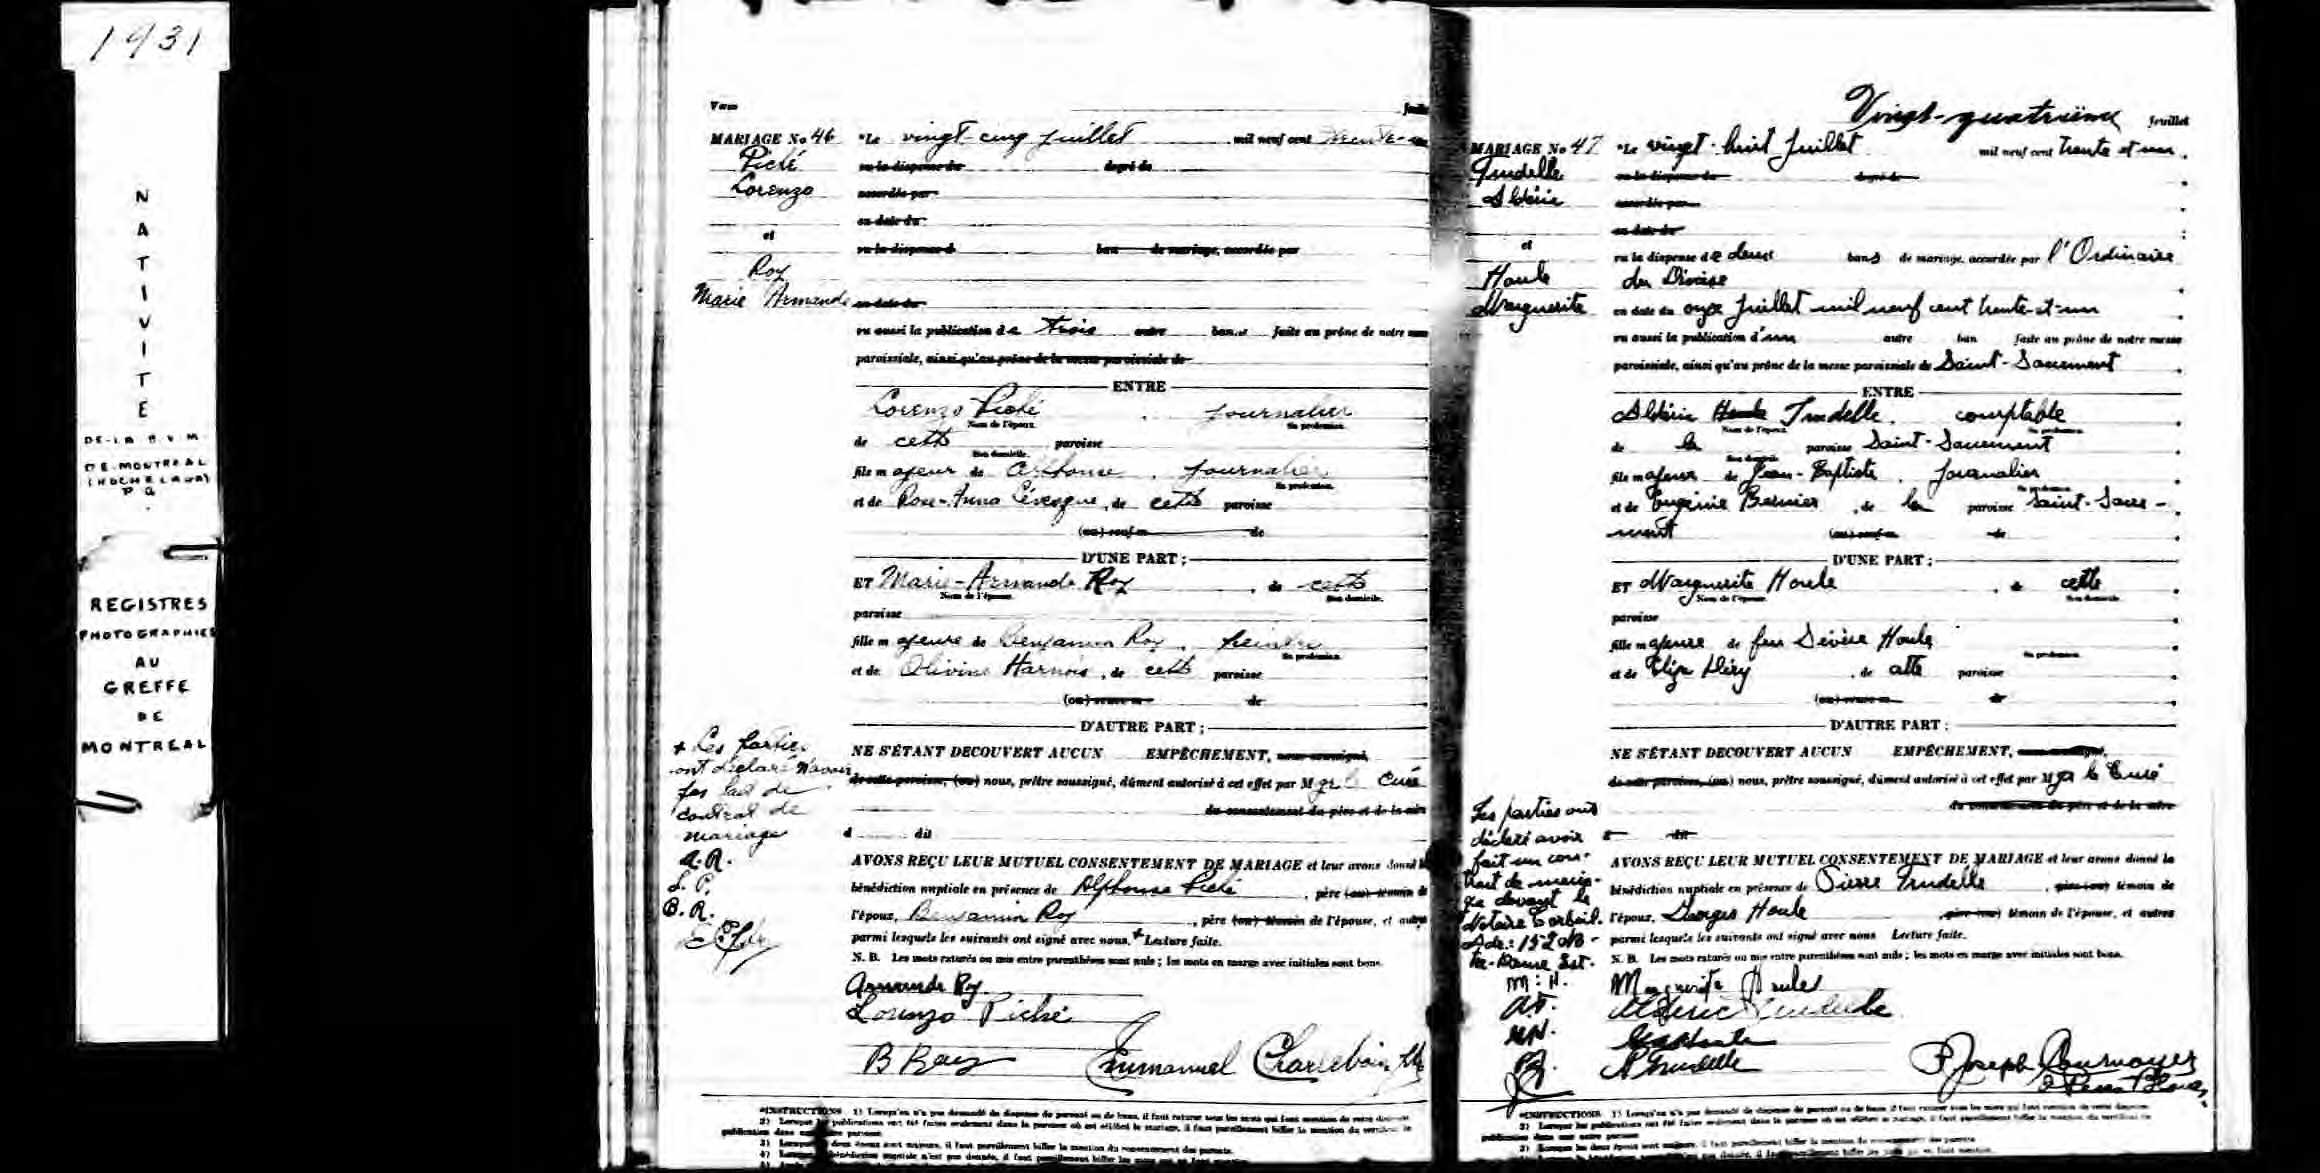 1931
NATIVITÉ
DE-LA B V M
DE-MONTREAL
(HOCHELAGA)
P Q
REGISTRES
PHOTOGRAPHIES
AU
GREFFE
DE
MONTREAL
MARIAGE No 46
Piché
Lorenzo
et
Roy
Marie Armande
Le vingt-cinq juillet mil neuf cent trente-un
vu la dispense du degré de
accordée par
en date du
vu la dispense d ban de mariage, accordée par
en date du
vu aussi la publication de trois autre bans faite au prône de notre messe
paroissiale, ainsi qu'au prône de la messe paroissiale de
ENTRE
Lorenzo Piché journalier
Nom de l'époux. Sa profession.
de cette paroisse
Son domicile.
fils majeur de Alphonse, journalier
Sa profession.
et de Rose-Anna Lévesque, de cette paroisse
(ou) veuf de
D'UNE PART:
ET Marie-Armande Roy, de cette
Nom de l'épouse. Son domicile.
paroisse
fille majeure de Benjamin Roy, peintre
Sa profession.
et de Olivine Harnois, de cette paroisse
(ou) veuve de
D'AUTRE PART:
NE S'ÉTANT DECOUVERT AUCUN EMPÊCHEMENT, nous soussigné,
de cette paroisse, (ou) nous, prêtre soussigné, dûment autorisé à cet effet par Mgr le Curé
du consentement du père et de la mère
d dit
AVONS REÇU LEUR MUTUEL CONSENTEMENT DE MARIAGE et leur avons donné la
bénédiction nuptiale en présence de Alphonse Piché, père (ou) témoin de
l'époux, Benjamin Roy, père (ou) témoin de l'épouse, et autres
parmi lesquels les suivants ont signé avec nous, + Lecture faite.
N. B. Les mots raturés ou mis entre parenthèses sont nuls ; les mots en marge avec initiales sont bons.
+ Les parties
ont déclaré n'avoir
pas fait de
contrat de
mariage
A.R.
L.P.
B.R.
Armande Roy
Lorenzo Piché
B Roy Emmanuel Charlebois
Vingt-quatrième feuillet
MARIAGE No 47
Trudelle
Albéric
et
Houle
Marguerite
Le vingt-huit juillet mil neuf cent trente et un
vu la dispense du degré de
accordée par
en date du
vu la dispense de deux bans de mariage, accordée par l'Ordinaire
du Diocèse
en date du onze juillet mil neuf cent trente-et-un
vu aussi la publication d'un autre ban faite au prône de notre messe
paroissiale, ainsi qu'au prône de la messe paroissiale de Saint-Sacrement
ENTRE
Albéric Houle Trudelle. comptable
Nom de l'époux. Sa profession.
de la paroisse Saint-Sacrement
Son domicile.
fils majeur de Jean-Baptiste, journalier
Sa profession.
et de Eugénie Bernier, de la paroisse Saint-Sacre-
ment (ou) veuf de
D'UNE PART:
ET Marguerite Houle, de cette
Nom de l'épouse. Son domicile.
paroisse
fille majeure de feu Sévère Houle
Sa profession.
et de Eliza Héry, de cette paroisse
(ou) veuve de
D'AUTRE PART:
NE S'ÉTANT DECOUVERT AUCUN EMPÊCHEMENT, nous soussigné,
de cette paroisse, (ou) nous, prêtre soussigné, dûment autorisé à cet effet par Mgr le Curé
du consentement du père et de la mère
d dit
AVONS REÇU LEUR MUTUEL CONSENTEMENT DE MARIAGE et leur avons donné la
bénédiction nuptiale en présence de Pierre Trudelle, père (ou) témoin de
l'époux, Georges Houle, père (ou) témoin de l'épouse, et autres
parmi lesquels les suivants ont signé avec nous Lecture faite.
N. B. Les mots raturés ou mis entre parenthèses sont nuls ; les mots en marge avec initiales sont bons.
Les parties ont
déclaré avoir
fait un con-
trat de maria-
ge devant le
Notaire Corbeil.
Adr.: 152 No-
tre-Dame Est.
M: H.
A.T.
Marguerite Houle
Albéric Trudelle
P Trudelle
Joseph Cournoyer